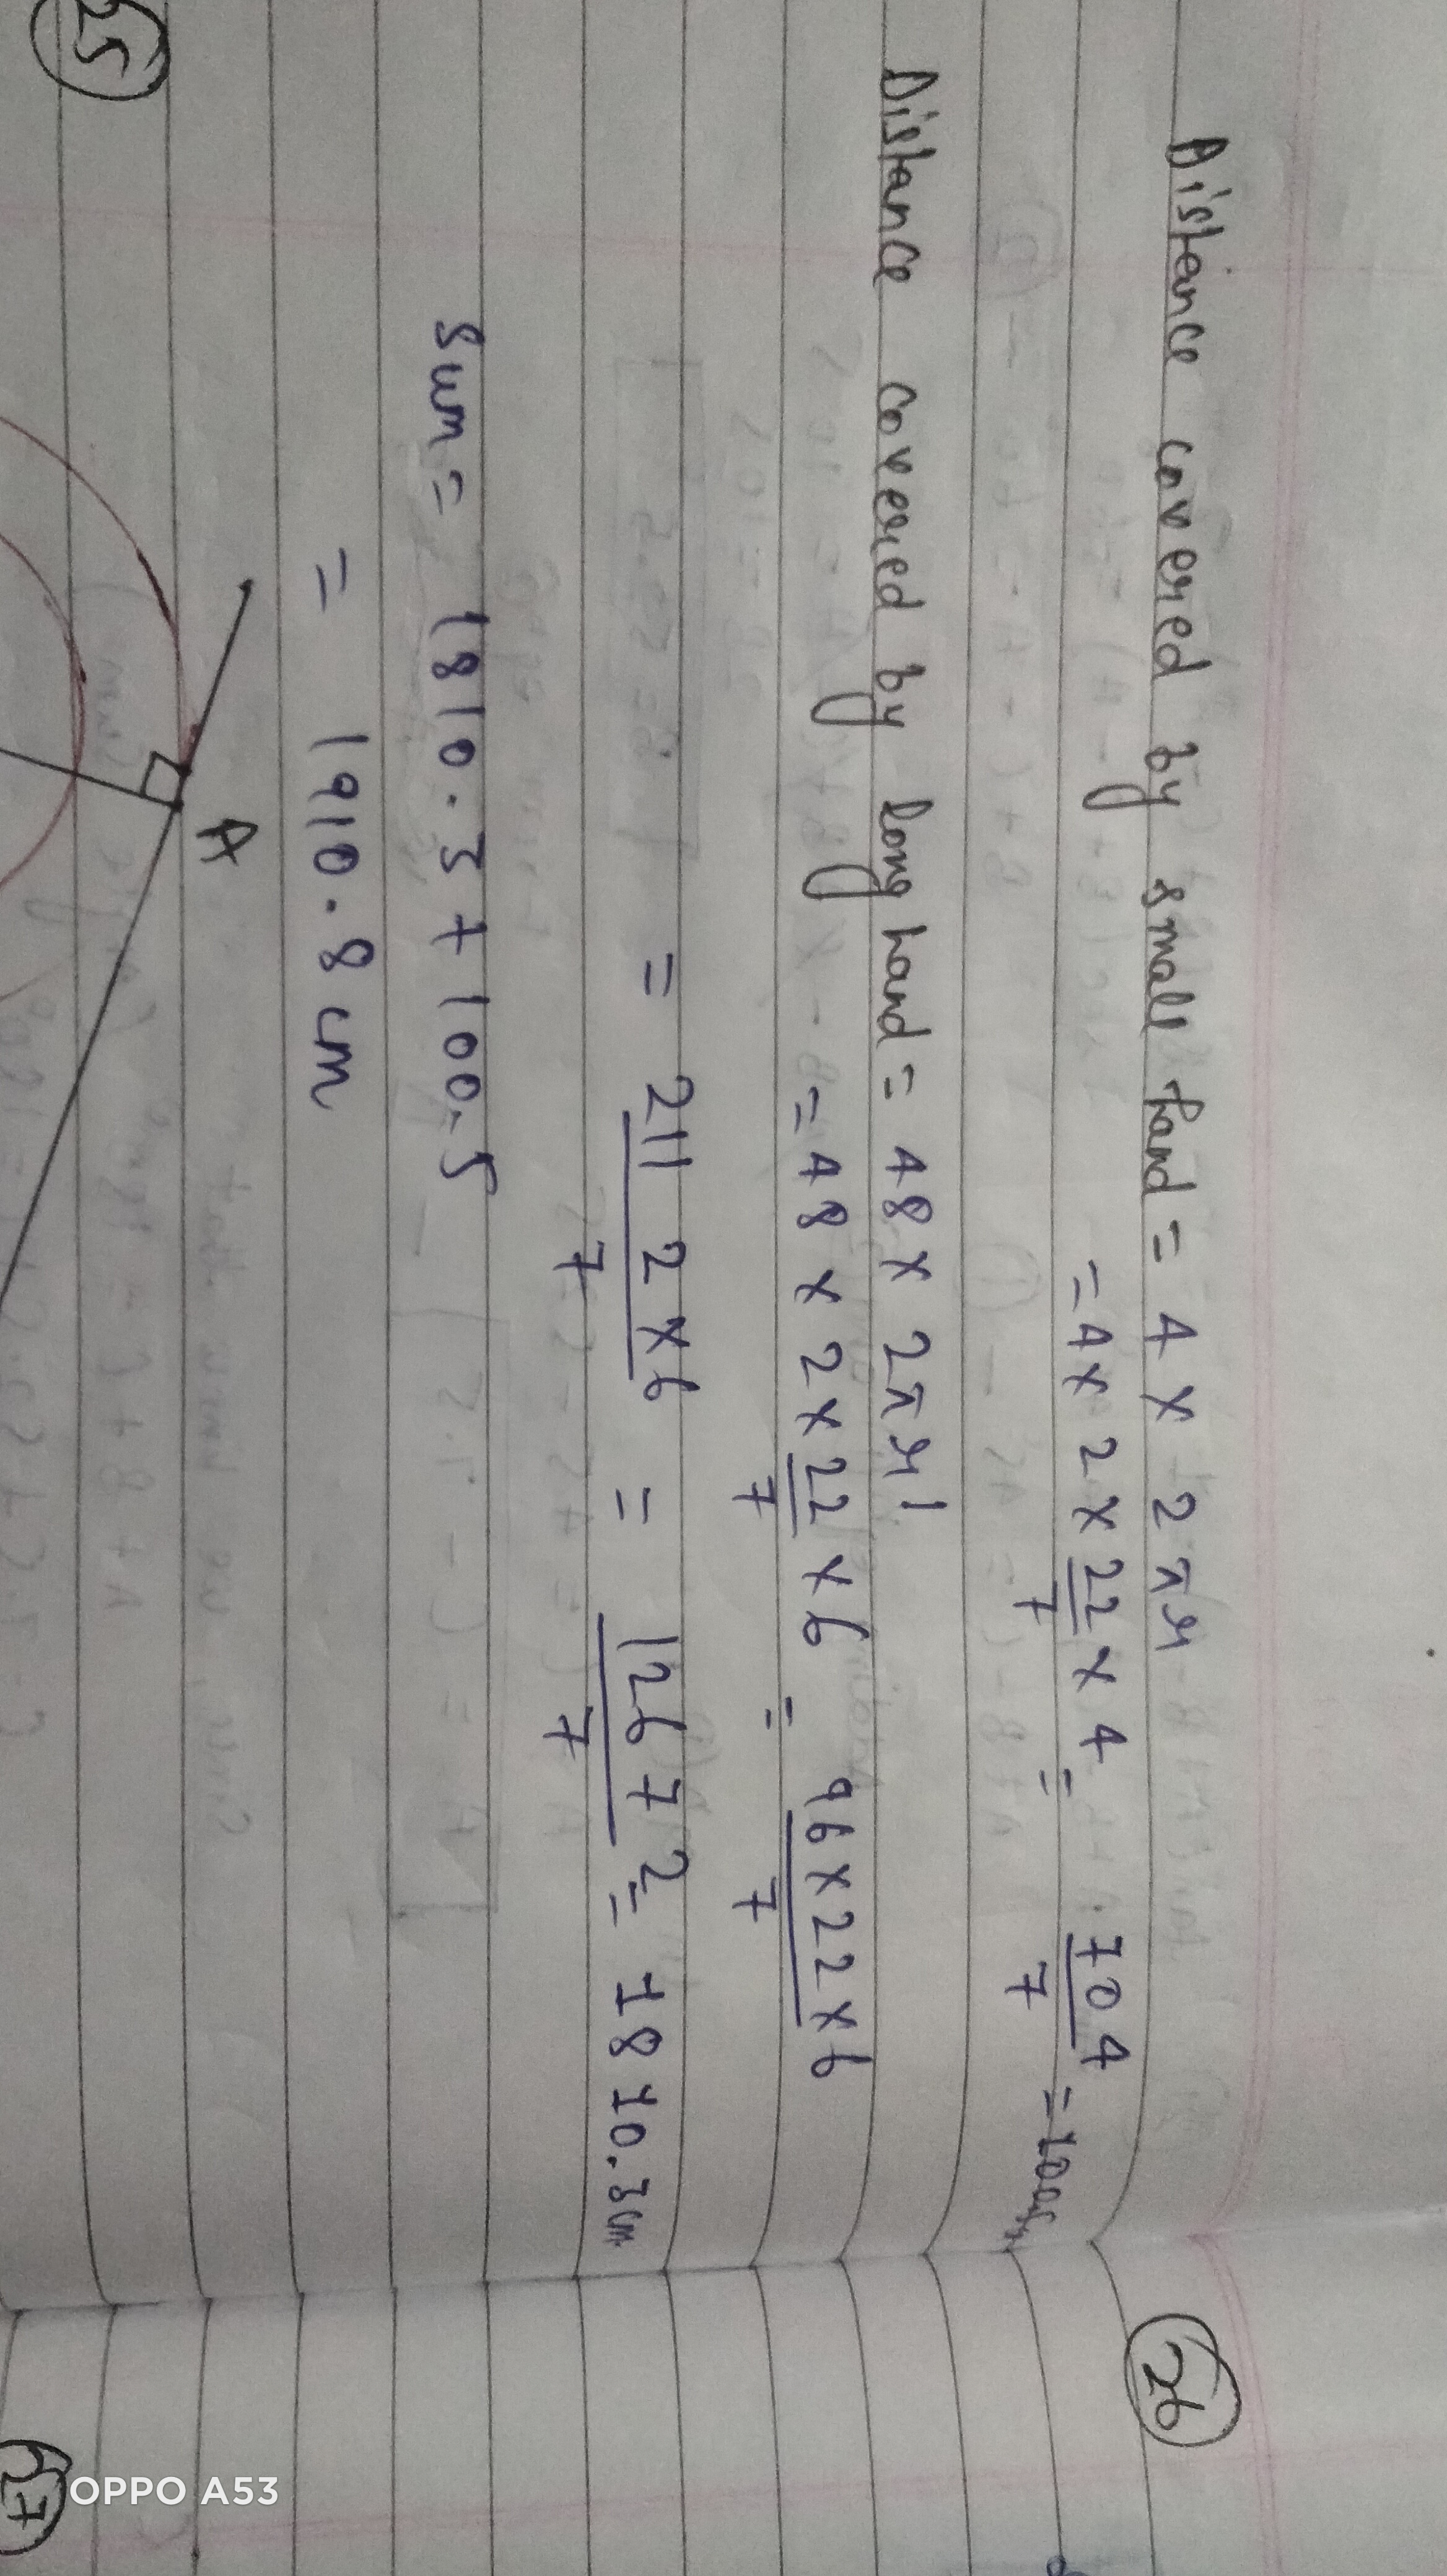 Distance covered by small hand = 4 x 2πr
= 4 x 2 x 22/7 x 4 = 704/7 =
26
Distance covered by long hand = 48 x 2πr'
= 48 x 2 x 22/7 x 6 = 96 x 22 x 6/7
= 2112 x 6/7 = 12672/7 = 1810.3cm
Sum = 1810.3 + 100.5
= 1910.8 cm
A
25
OPPO A53